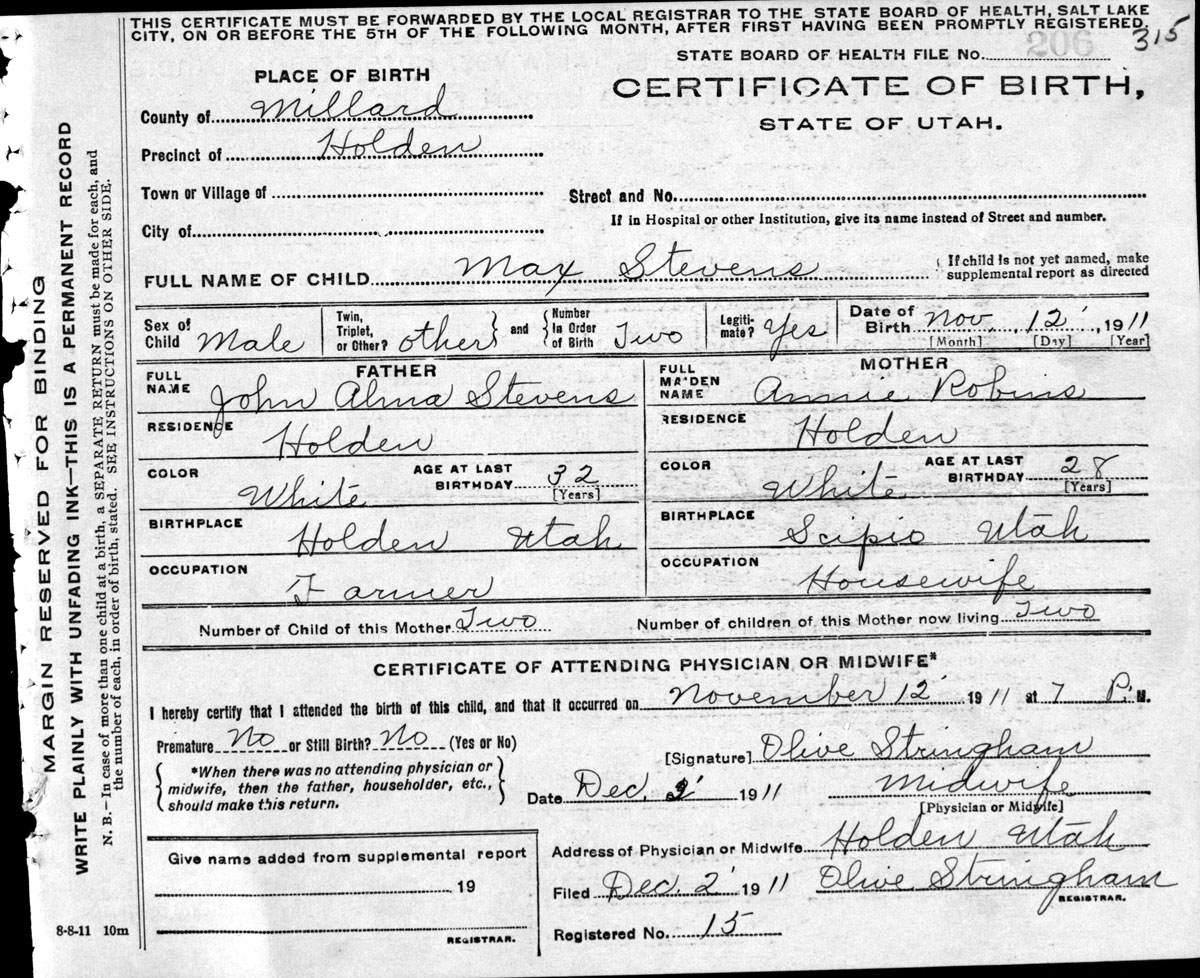 THIS CERTIFICATE MUST BE FORWARDED BY THE LOCAL REGISTRAR TO THE STATE BOARD OF HEALTH, SALT LAKE
CITY, ON OR BEFORE THE 5TH OF THE FOLLOWING MONTH, AFTER FIRST HAVING BEEN PROMPTLY REGISTERED.
315
STATE BOARD OF HEALTH FILE No. 206
CERTIFICATE OF BIRTH,
STATE OF UTAH.
PLACE OF BIRTH
County of Millard
Precinct of Holden
Town or Village of
City of
Street and No.
If in Hospital or other Institution, give its name instead of Street and number.
FULL NAME OF CHILD Max Stevens
If child is not yet named, make
supplemental report as directed
Sex of Child Male
Twin, Triplet, or Other? other
and
Number In Order of Birth Two
Legiti-mate? Yes
Date of Birth Nov. 12 1911
[Month] [Day] [Year]
FATHER
FULL NAME John Alma Stevens
RESIDENCE Holden
COLOR White
AGE AT LAST BIRTHDAY 32 [Years]
BIRTHPLACE Holden Utah
OCCUPATION Farmer
MOTHER
FULL MAIDEN NAME Annie Robins
RESIDENCE Holden
COLOR White
AGE AT LAST BIRTHDAY 28 [Years]
BIRTHPLACE Scipio Utah
OCCUPATION Housewife
Number of Child of this Mother Two
Number of children of this Mother now living Two
CERTIFICATE OF ATTENDING PHYSICIAN OR MIDWIFE*
I hereby certify that I attended the birth of this child, and that it occurred on November 12 1911 at 7 P. M.
Premature No or Still Birth? No (Yes or No)
*When there was no attending physician or
midwife, then the father, householder, etc.,
should make this return.
[Signature] Olive Stringham
Date Dec. 2 1911
Midwife
[Physician or Midwife]
Address of Physician or Midwife Holden Utah
Filed Dec. 2 1911
Olive Stringham
REGISTRAR.
Registered No. 15
Give name added from supplemental report
19
REGISTRAR.
8-8-11 10m
MARGIN RESERVED FOR BINDING
WRITE PLAINLY WITH UNFADING INK—THIS IS A PERMANENT RECORD
N. B.—In case of more than one child at a birth, a SEPARATE RETURN must be made for each, and
the number of each, in order of birth, stated. SEE INSTRUCTIONS ON OTHER SIDE.